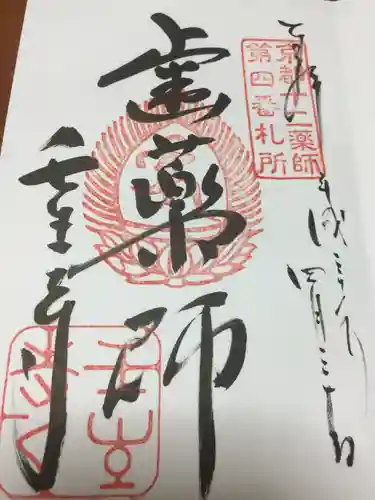 奉拝
京都十二薬師
第四番札所
平成三十年
四月三十日
歯薬師
壬生寺